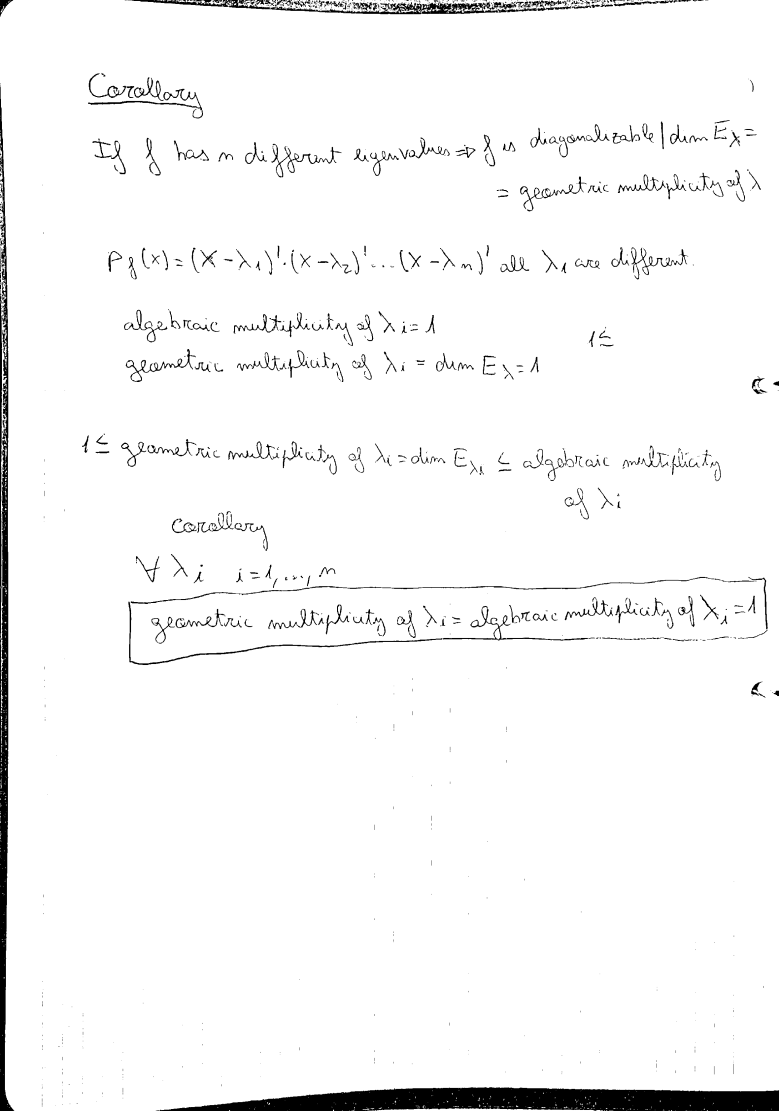 Corollary
If f has n different eigenvalues ⇒ f is diagonalizable | dim E_λ =
= geometric multiplicity of λ
P_f(x) = (x - λ_1)^1 · (x - λ_2)^1 ... (x - λ_n)^1 all λ_i are different.
algebraic multiplicity of λ_i = 1
geometric multiplicity of λ_i = dim E_λ = 1 1≤
1 ≤ geometric multiplicity of λ_i = dim E_λ_i ≤ algebraic multiplicity
of λ_i
Corollary
∀ λ_i i=1,...,n
geometric multiplicity of λ_i = algebraic multiplicity of λ_i = 1